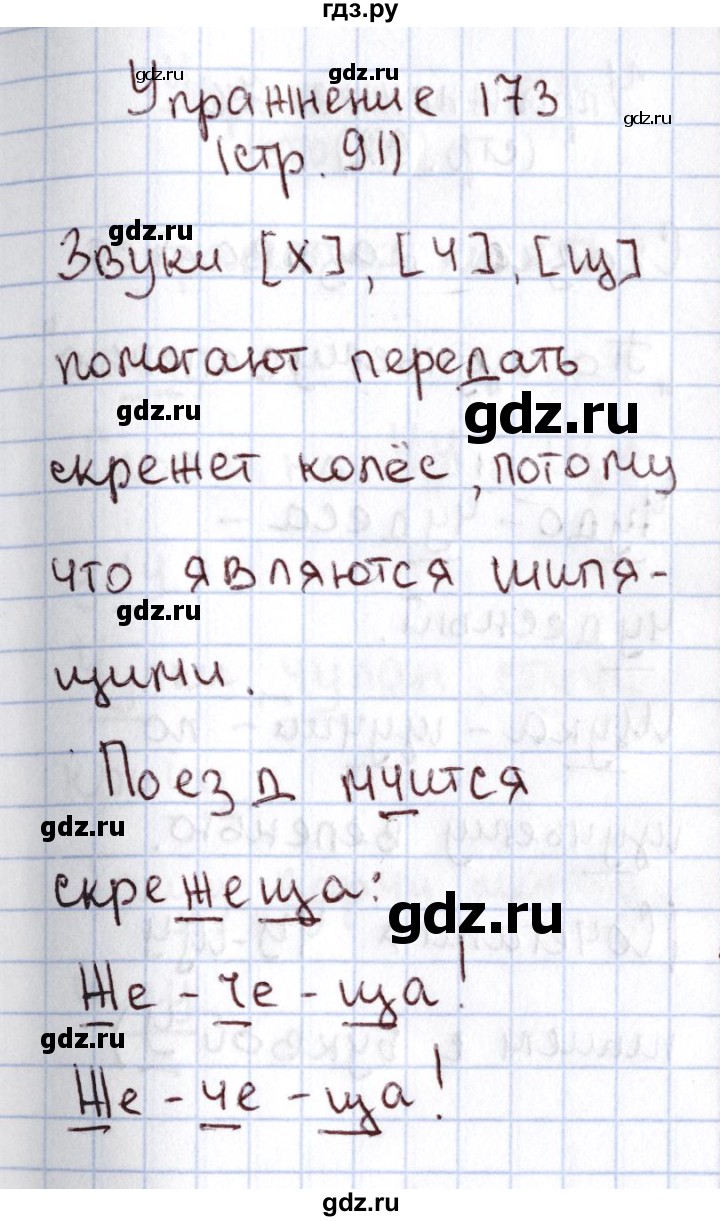 гдз.ру
gdz.ru
gdz.ru
Упражнение 173
gdz.ru
(стр. 91)
gdz.ru
Звуки [х], [ч], [щ]
помогают передать
gdz.ru
gdz.ru
скрежет колёс, потому
что являются шипя-
gdz.ru
щими.
Поезд мчится
gdz.ru
скрежеща:
gdz.ru
Же - че - ща!
gdz.ru
Же - че - ща!
gdz.ru
gdz.ru